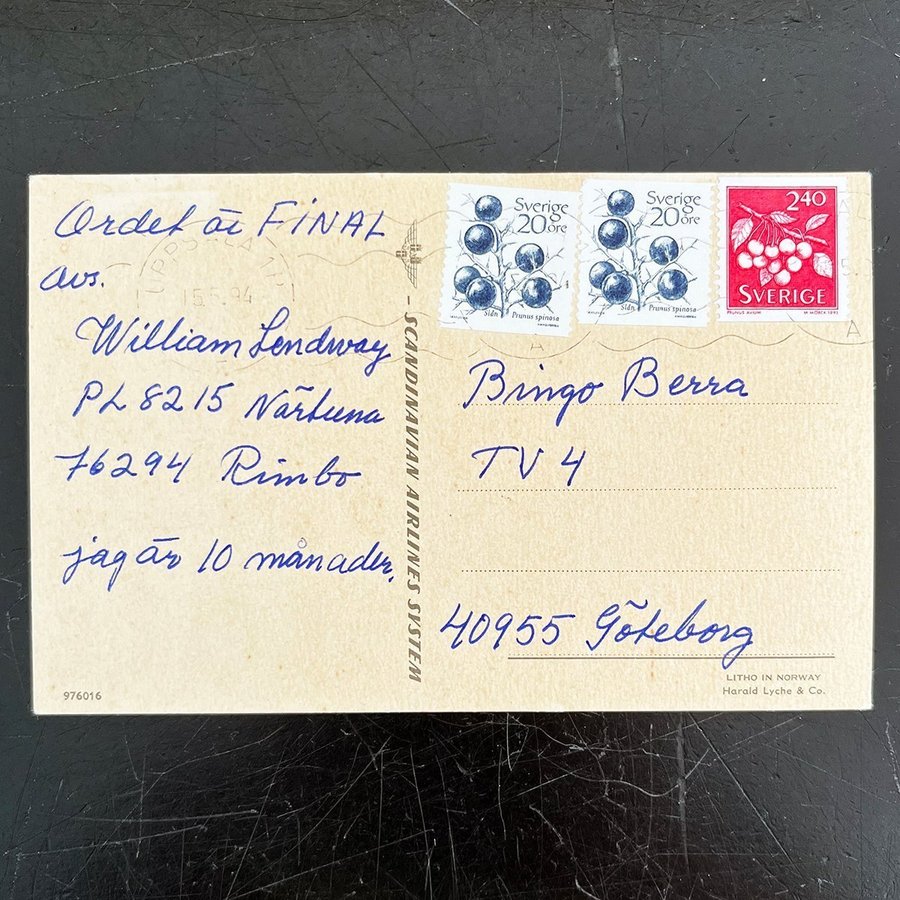 Ordet är FINAL
avs.
William Lendway
PL 8215 Närtuna
76294 Rimbo
jag är 10 månader.
976016
SCANDINAVIAN AIRLINES SYSTEM
UPPSALA
15.5.94
Sverige
20 öre
Slån Prunus spinosa
Sverige
20 öre
Slån Prunus spinosa
240
SVERIGE
PRUNUS AVIUM
A
A
Bingo Berra
TV4
40955 Göteborg
LITHO IN NORWAY
Harald Lyche & Co.